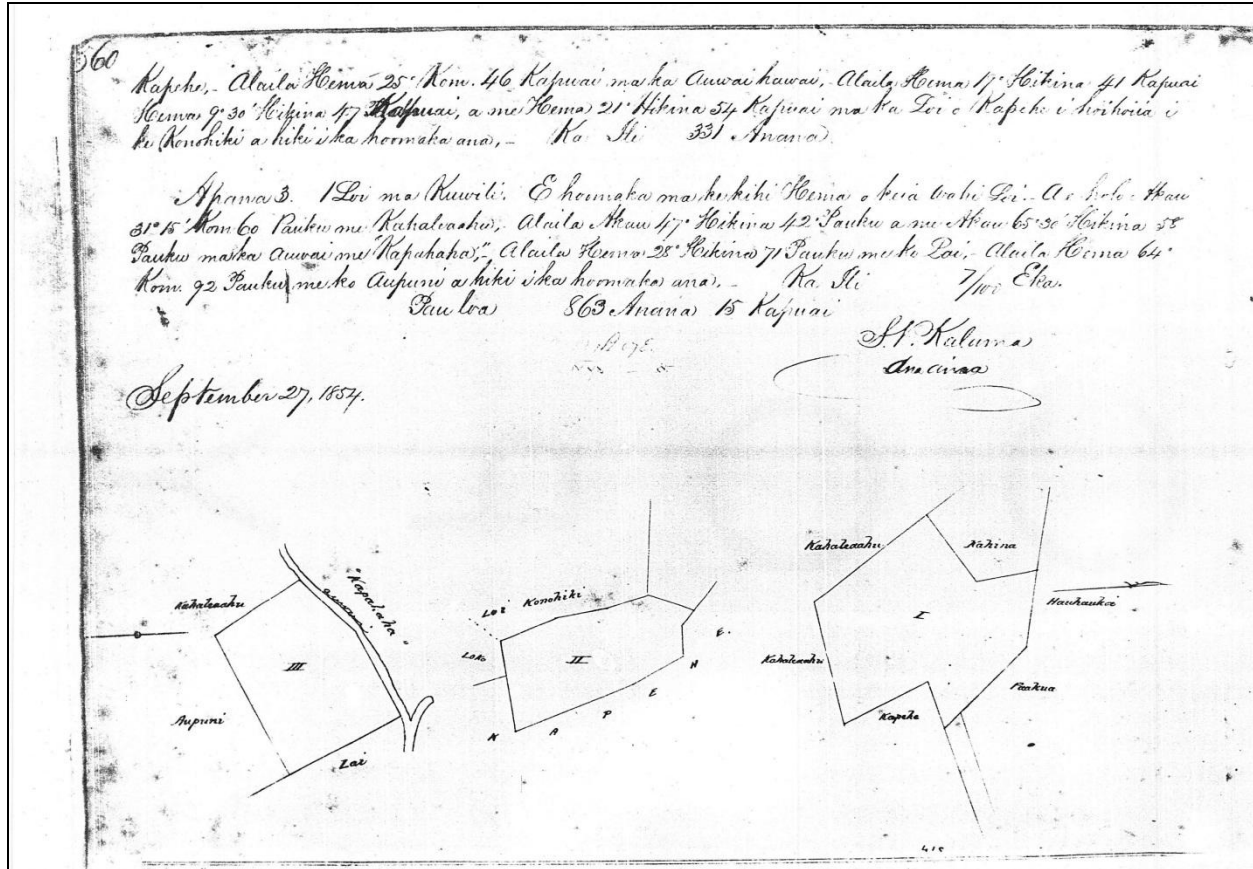 560
Kapehe,- Alaila Hema 25° Kom. 46 Kapuai ma ka Auwai hawai,- Alaila Hema 17° Hikina 41 Kapuai
Hema 9° 30 Hikina 47 Kapuai, a me Hema 21° Hikina 54 Kapuai ma ka Loi o Kapehe i hoihoiia i
ke Konohiki a hiki i ka hoomaka ana,- Ka Ili 331 Anana.
Apana 3. 1 Loi ma Kuwili. E hoomaka ma ke kihi Hema o keia wahi Loi. A e holo Akau
31° 15' Kom 60 Pauku me Kahaleaahu,- Alaila Akau 47° Hikina 42 Pauku a me Akau 65° 30' Hikina 58
Pauku ma ka Auwai me "Kapahaha,"- Alaila Hema 28° Hikina 71 Pauku me ko Lai,- Alaila Hema 64°
Kom. 92 Pauku me ko Aupuni a hiki i ka hoomaka ana,- Ka Ili 7/100 Eka.
Pau loa 863 Anana 15 Kapuai
S.P. Kaluma
Ana aina
September 27, 1854.
Kahaleaahu
"Kapahaha"
III
Aupuni
Lai
Loi Konohiki
Loko
II
K A P E H E.
Kahaleaahu
Nahina
Haukaukoi
I
Kahaleaahu
Paakua
Kapehe